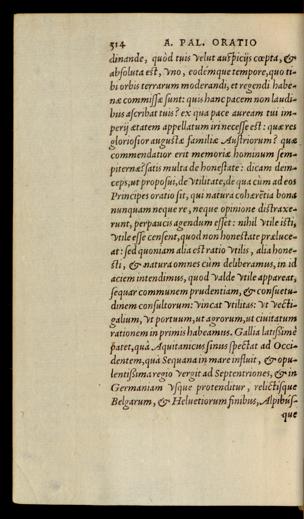 314 A. PAL. ORATIO
dinande, quòd tuis velut auspicijs cœpta, &
absoluta est, vno, eodémque tempore, quo ti-
bi orbis terrarum moderandi, et regendi habe-
næ commissæ sunt: quis hanc pacem non laudi-
bus ascribat tuis? ex qua pace auream tui im-
perij ætatem appellatum iri necesse est: quæ res
gloriosior augustæ familiæ Austriorum? quæ
commendatior erit memoriæ hominum sem-
piternæ? satis multa de honestate: dicam dein-
ceps, ut proposui, de vtilitate, de qua cùm ad eos
Principes oratio sit, qui natura cohærẽtia bona
nunquam neque re, neque opinione distraxe-
runt, perpaucis agendum esset: nihil vtile isti,
vtile esse censent, quod non honestate præluce-
at: sed quoniam alia est ratio vtilis, alia hone-
sti, & natura omnes cùm deliberamus, in id
aciem intendimus, quod valde vtile appareat,
sequar communem prudentiam, & consuetu-
dinem consultorum: vincat vtilitas: vt vecti-
galium, vt portuum, ut agrorum, ut ciuitatum
rationem in primis habeamus. Gallia latissimè
patet, quà Aquitanicus sinus spectat ad Occi-
dentem, quà Sequana in mare influit, & opu-
lentissima regio vergit ad Septentriones, & in
Germaniam vsque protenditur, relictisque
Belgarum, & Heluetiorum finibus, Alpibús-
que